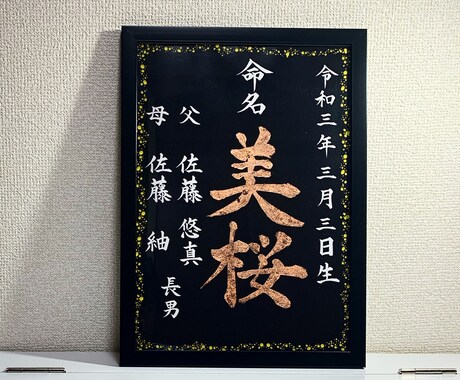 令和三年三月三日生
命名
美桜
父 佐藤 悠真
長男
母 佐藤 紬